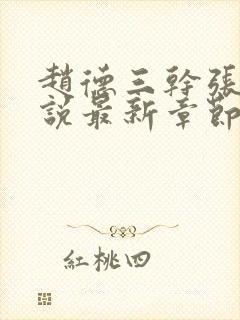 趙德三幹張
說最新章節
紅桃四